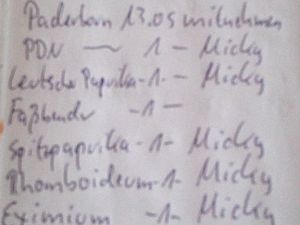 Paderborn 13.05 mitnehmen
PDN ~ 1 - Micky
Leutscho Paprika -1- - Micky
Faßhendr -1 -
Spitzpaprika -1- Micky
Rhomboideum -1- Micky
Eximium -1- Micky